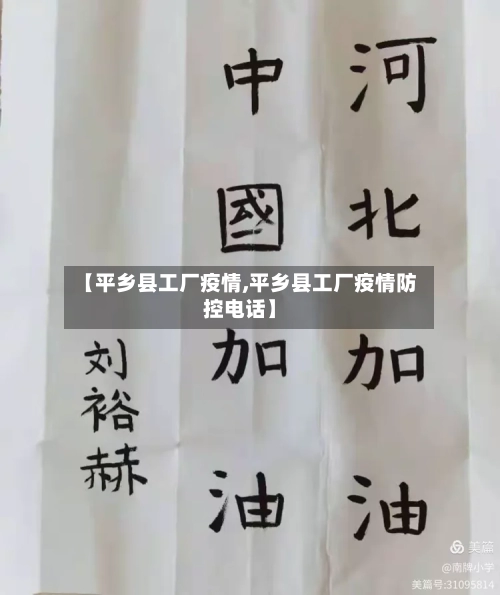 河北加油
中國加油
刘裕赫
【平乡县工厂疫情,平乡县工厂疫情防
控电话】
美篇
@南牌小学
美篇号:31095814